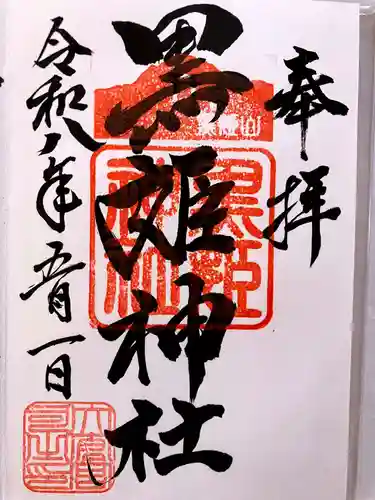 奉拝
黒姫神社
黒姫山
黒姫神社
令和八年五月一日